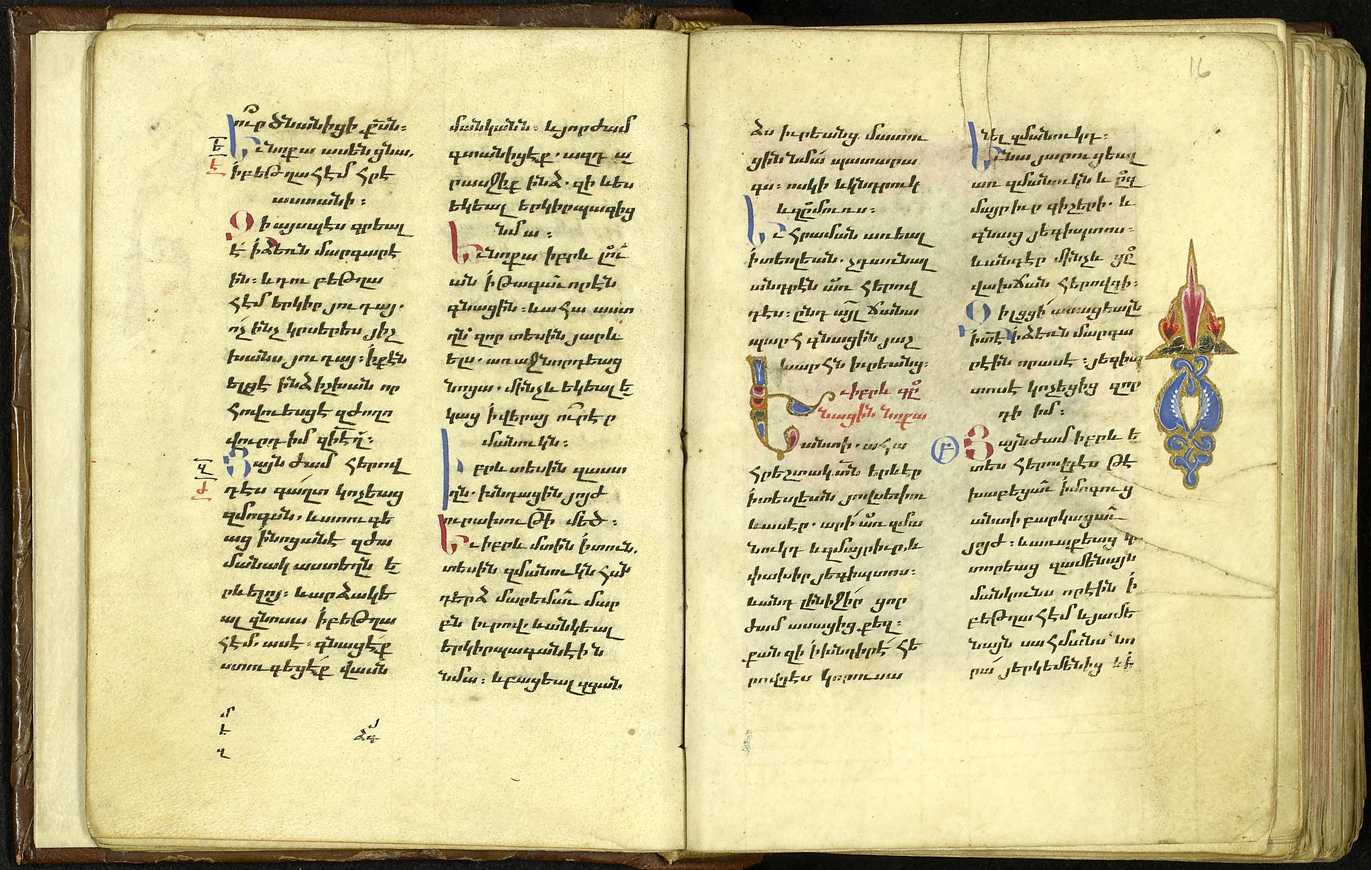 ուր ծնանիցի քսն։
Եւ նոքա ասեն ցնա.
ի բեթղահէմ հրէ
աստանի։
Զի այսպէս գրեալ
է ի ձեռն մարգարէ
ին։ և դու բեթղա
հէմ երկիր յուդայ.
ոչ ինչ կրսերես յիշ
խանս յուդայ։ ի քէն
ելցէ ինձ իշխան որ
հովուեսցէ զժողո
վուրդ իմ զիէղ։
Յայնժամ հերով
դէս գաղտ կոչեաց
զմոգսն. և ստուգե
աց ի նոցանէ զժա
մանակ աստեղն ե
րևելոյ։ և արձակե
ալ զնոսա ի բեթղա
հէմ. ասէ. գնացէք
ստուգեցէք վասն
մանկանն. և յորժամ
գտանիցէք. ազդ ա
րասջիք ինձ. զի և ես
եկեալ երկիրպագից
նմա։
Եւ նոքա իբրև լու
ան ի թագաւորէն
գնացին։ և ահա աստ
ղն զոր տեսին յարև
ելս. առաջնորդեաց
նոցա. մինչև եկեալ ե
կաց ի վերայ ուր էր
մանուկն։
Իբրև տեսին զաստ
ղն. խնդացին յոյժ
ուրախութի մեծ։
Եւ իբրև մտին ի տունն.
տեսին զմանուկն հան
դերձ մարեմաւ մար
բն իւրով. և անկեալ
երկիրպագանէին
նմա։ և բացեալ զգան
ձս իւրեանց մատու
ցին նմա պատարա
գս. ոսկի և կնդրուկ
և զմուռս։
Եւ հրաման առեալ
ի տեսլեան. չդառնալ
անդրէն առ հերով
դէս։ ընդ այլ ճանա
պարհ գնացին յաշ
խարհն իւրեանց։
Եւ իբրև գը
նացին նոքա
անտի. ահա
հրեշտակ տն երևեր
ի տեսլեան յովսեփու
և ասէր. արի առ զմա
նուկդ և զմայր իւր. և
փախիր յեգիպտոս։
և անդ լինիջիր ցոր
ժամ ասացից քեզ։
քանզի ի խնդիր է հե
րովդէս կորուսա
նել զմանուկդ։
Եւ նա յարուցեալ
առ զմանուկն և ըզ
մայր իւր գիշերի. և
գնաց յեգիպտոս։
և անդէր մինչև ցը
վախճան հերովդի։
Զի լցցի ասացեալն
ի տէ ի ձեռն մարգա
րէին որ ասէ։ յեգիպ
տոսէ կոչեցից զոր
դի իմ։
Յայնժամ իբրև ե
տես հերովդէս թէ
խաբեցաւ ի մոգուց
անտի բարկացաւ
յոյժ։ և առաքեաց կո
տորեաց զամենայն
մանկունս որ էին ի
բեթղահէմ և յամե
նայն սահմանս նո
րա յերկեմենից և ի
16